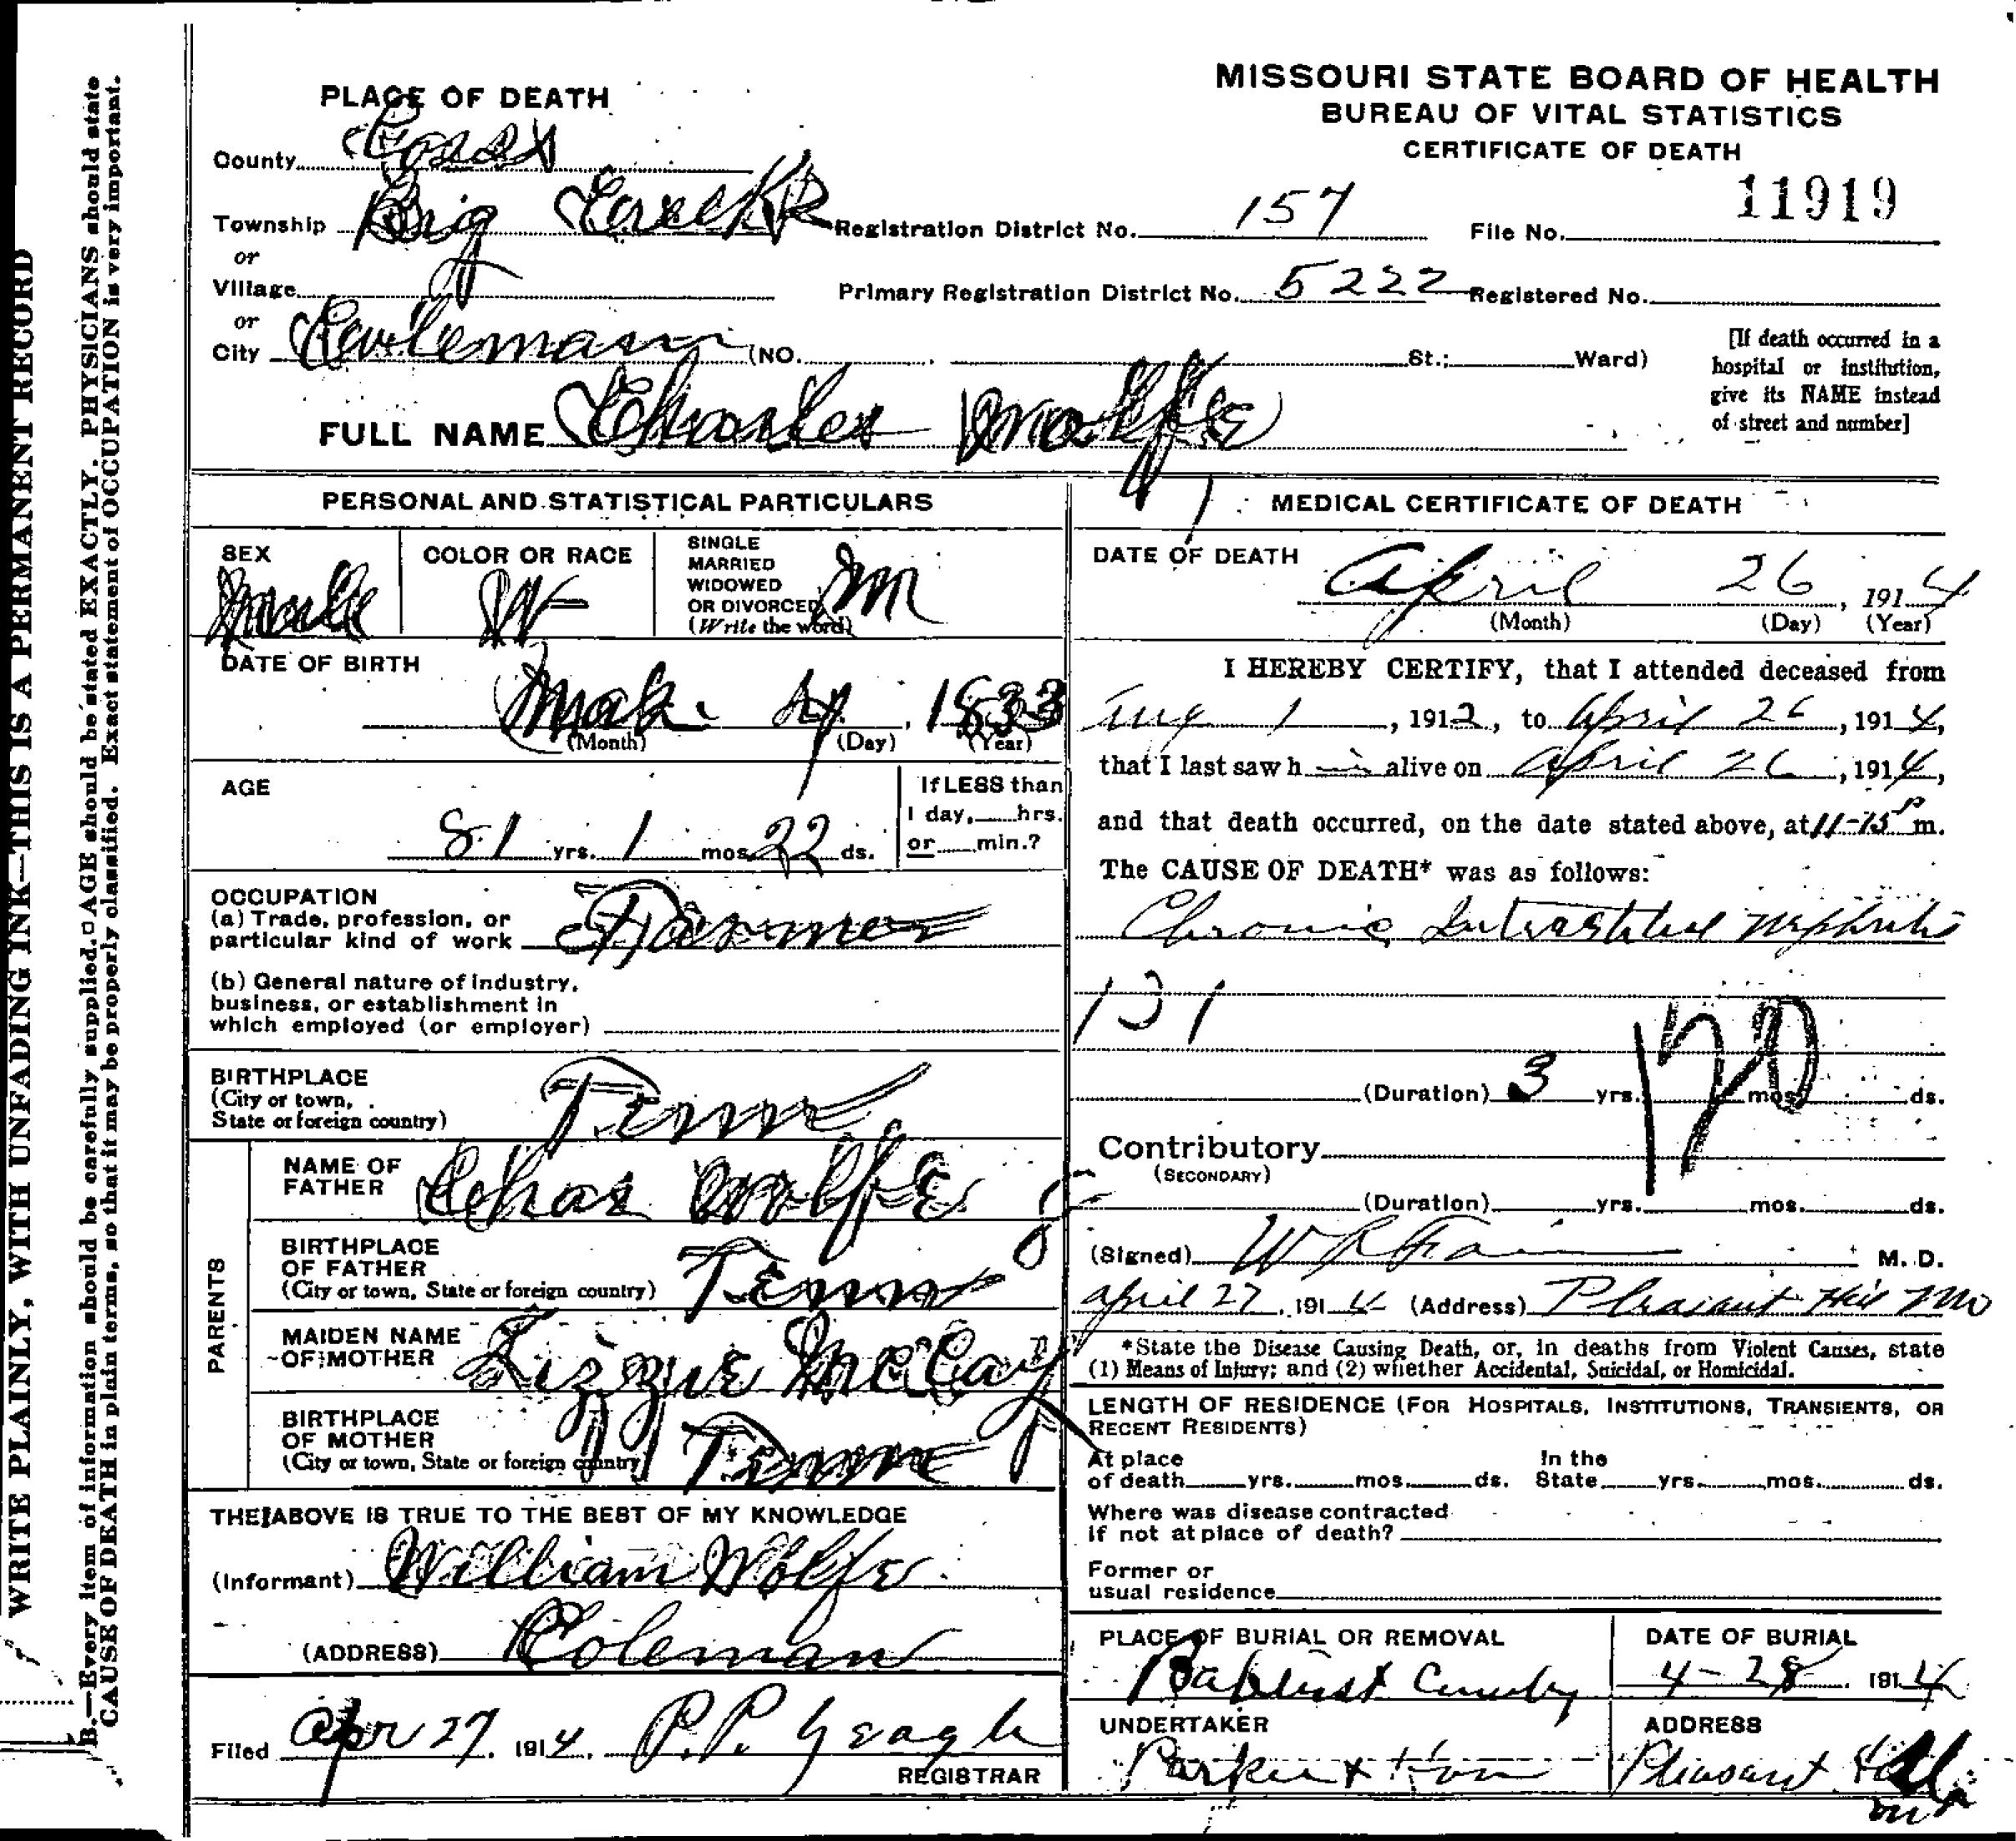 WRITE PLAINLY, WITH UNFADING INK—THIS IS A PERMANENT RECORD
B.—Every item of information should be carefully supplied. AGE should be stated EXACTLY. PHYSICIANS should state
CAUSE OF DEATH in plain terms, so that it may be properly classified. Exact statement of OCCUPATION is very important.
MISSOURI STATE BOARD OF HEALTH
BUREAU OF VITAL STATISTICS
CERTIFICATE OF DEATH
PLACE OF DEATH
County Cass
Township Big Creek Registration District No. 157 File No. 11919
or
Village Primary Registration District No. 5222 Registered No.
or
City (NO. St.; Ward)
[If death occurred in a
hospital or institution,
give its NAME instead
of street and number]
FULL NAME Charles Wolfe
PERSONAL AND STATISTICAL PARTICULARS
SEX Male
COLOR OR RACE W
SINGLE
MARRIED
WIDOWED
OR DIVORCED
(Write the word) M
DATE OF BIRTH
Mch. 4, 1833
(Month) (Day) (Year)
AGE
81 yrs. 1 mos 22 ds.
If LESS than
1 day, hrs.
or min.?
OCCUPATION
(a) Trade, profession, or
particular kind of work Farmer
(b) General nature of industry,
business, or establishment in
which employed (or employer)
BIRTHPLACE
(City or town,
State or foreign country) Tenn
PARENTS
NAME OF
FATHER Chas Wolfe
BIRTHPLACE
OF FATHER
(City or town, State or foreign country) Tenn
MAIDEN NAME
OF MOTHER Lizzie McCay
BIRTHPLACE
OF MOTHER
(City or town, State or foreign country) Tenn
THE ABOVE IS TRUE TO THE BEST OF MY KNOWLEDGE
(Informant) William Wolfe
(ADDRESS) Coleman
Filed Apr 27, 1914, P.P.
REGISTRAR
MEDICAL CERTIFICATE OF DEATH
DATE OF DEATH April 26, 1914
(Month) (Day) (Year)
I HEREBY CERTIFY, that I attended deceased from
Aug 1, 1912, to April 26, 1914,
that I last saw h im alive on April 26, 1914,
and that death occurred, on the date stated above, at 11-15 P m.
The CAUSE OF DEATH* was as follows:
Chronic Interstitial Nephritis
131
120
(Duration) 3 yrs. mos. ds.
Contributory
(SECONDARY)
(Duration) yrs. mos. ds.
(Signed) M. D.
April 27, 1914 (Address) Pleasant Hill Mo
*State the Disease Causing Death, or, in deaths from Violent Causes, state
(1) Means of Injury; and (2) whether Accidental, Suicidal, or Homicidal.
LENGTH OF RESIDENCE (FOR HOSPITALS, INSTITUTIONS, TRANSIENTS, OR
RECENT RESIDENTS)
At place
of death yrs. mos. ds.
In the
State yrs. mos. ds.
Where was disease contracted
if not at place of death?
Former or
usual residence
PLACE OF BURIAL OR REMOVAL
Baptist
DATE OF BURIAL
4-28 1914
UNDERTAKER
Parker
ADDRESS
Pleasant Hill
Mo